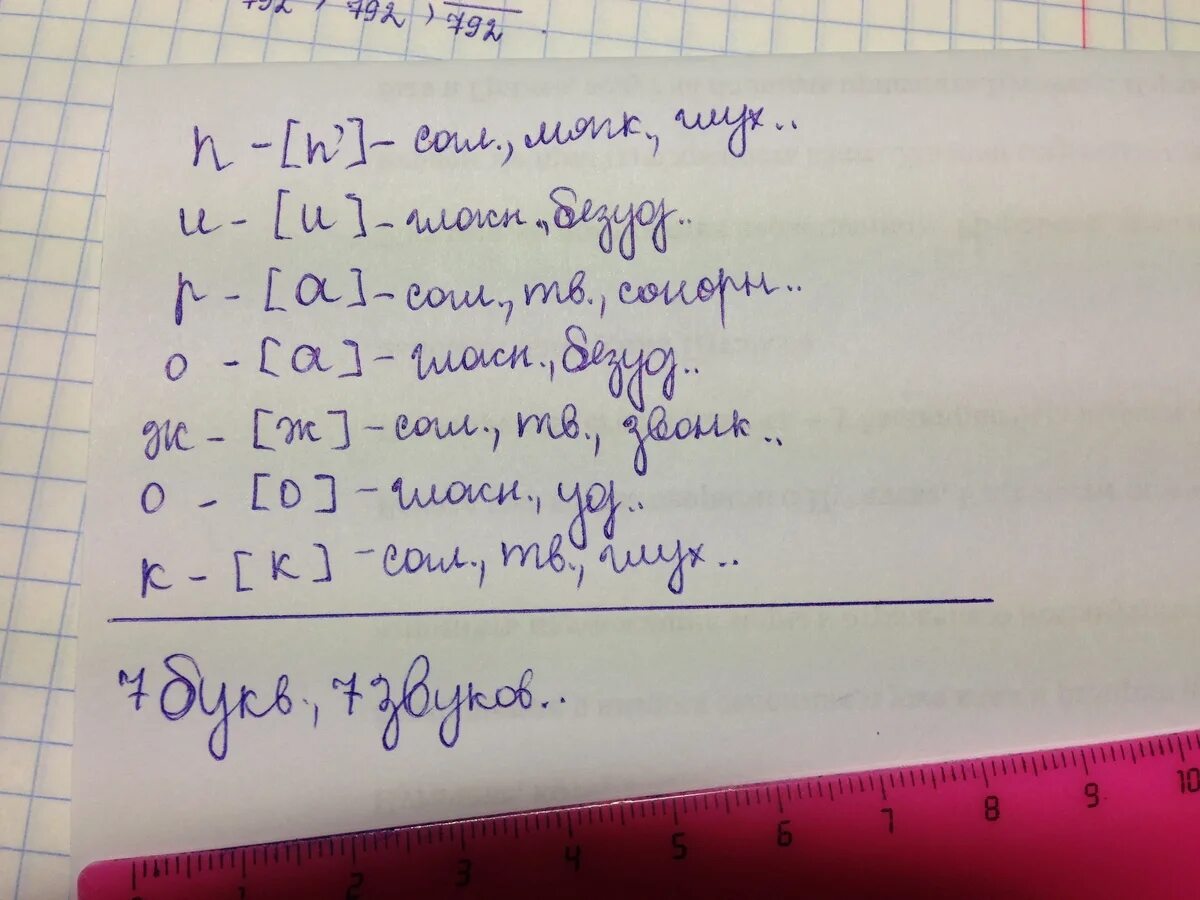 792 , 792 , 792 .
п - [п'] - согл., мягк., глух..
и - [и] - гласн., безуд..
р - [а] - согл., тв., сонорн..
о - [а] - гласн., безуд..
ж - [ж] - согл., тв., звонк..
о - [о] - гласн., уд..
к - [к] - согл., тв., глух..
7 букв., 7 звуков..
0 1 2 3 4 5 6 7 8 9 10